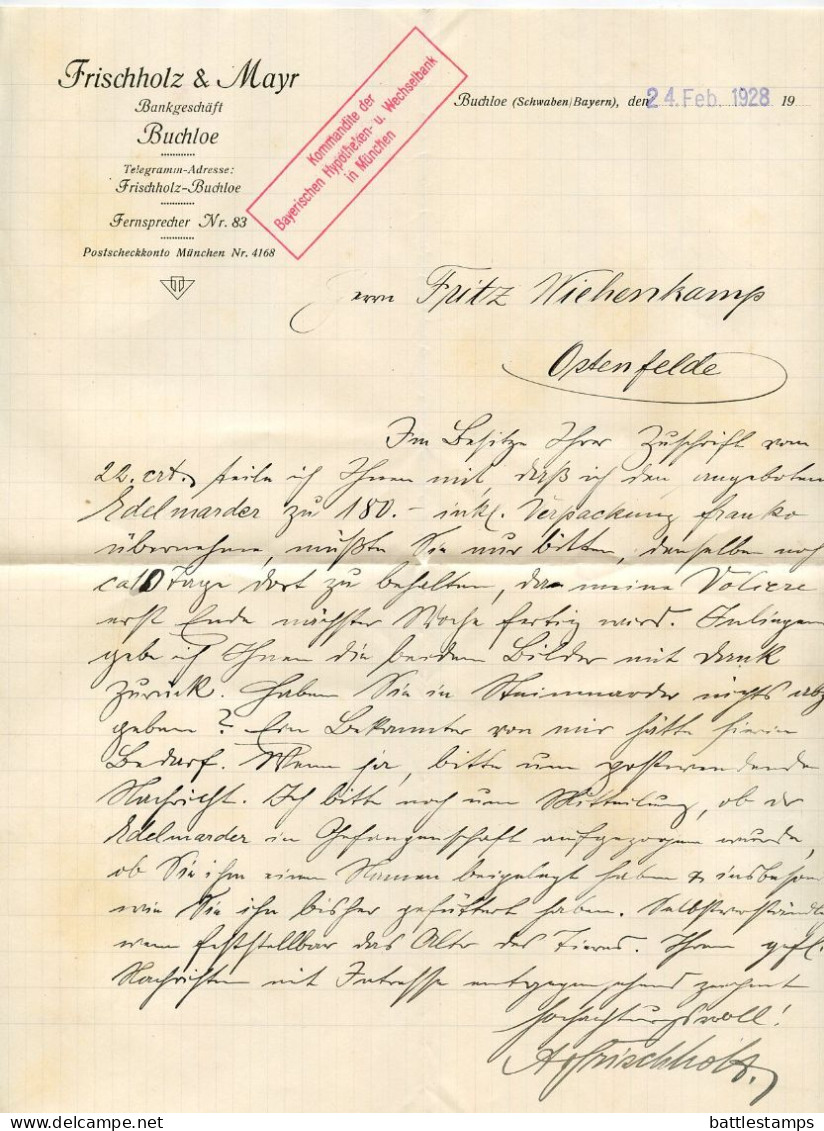 Frischholz & Mayr
Bankgeschäft
Buchloe
Telegramm-Adresse:
Frischholz-Buchloe
Fernsprecher Nr. 83
Postscheckkonto München Nr. 4168
Kommandite der
Bayerischen Hypotheken- u. Wechselbank
in München
Buchloe (Schwaben/Bayern), den 24. Feb. 1928 19
Herrn Fritz Wiehenkamp
Ostenfelde
Im Besitze Ihrer Zuschrift vom
22. crt. teile ich Ihnen mit, daß ich den angeboten
Edelmarder zu 180.- inkl. Verpackung franko
übernehme, müßte Sie nur bitten, denselben noch
ca 10 Tage dort zu behalten, da meine Voliere
erst Ende nächster Woche fertig wird. Inliegend
gebe ich Ihnen die beiden Bilder mit Dank
zurück. Haben Sie in Steinmarder nichts abzu
geben? Ein Bekannter von mir hätte hierin
Bedarf. Wenn ja, bitte um postwendende
Nachricht. Ich bitte noch um Mitteilung, ob der
Edelmarder in Gefangenschaft aufgezogen wurde,
ob Sie ihm einen Namen beigelegt haben & insbeson
wie Sie ihn bisher gefüttert haben. Selbstverständl
wenn feststellbar das Alter des Tieres. Ihren gefl.
Nachrichten mit Intresse entgegensehend zeichnet
hochachtungsvoll!
A. Frischholz.
battlestamps